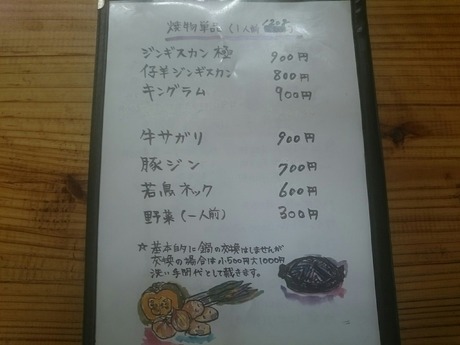 焼物単品(1人前
ジンギスカン 極 900円
仔羊ジンギスカン 800円
キングラム 900円
牛サガリ 900円
豚ジン 700円
若鳥ネック 600円
野菜(一人前) 300円
☆基本的に鍋の交換はしませんが
交換の場合は小500円大1000円
洗い手間代として戴きます。